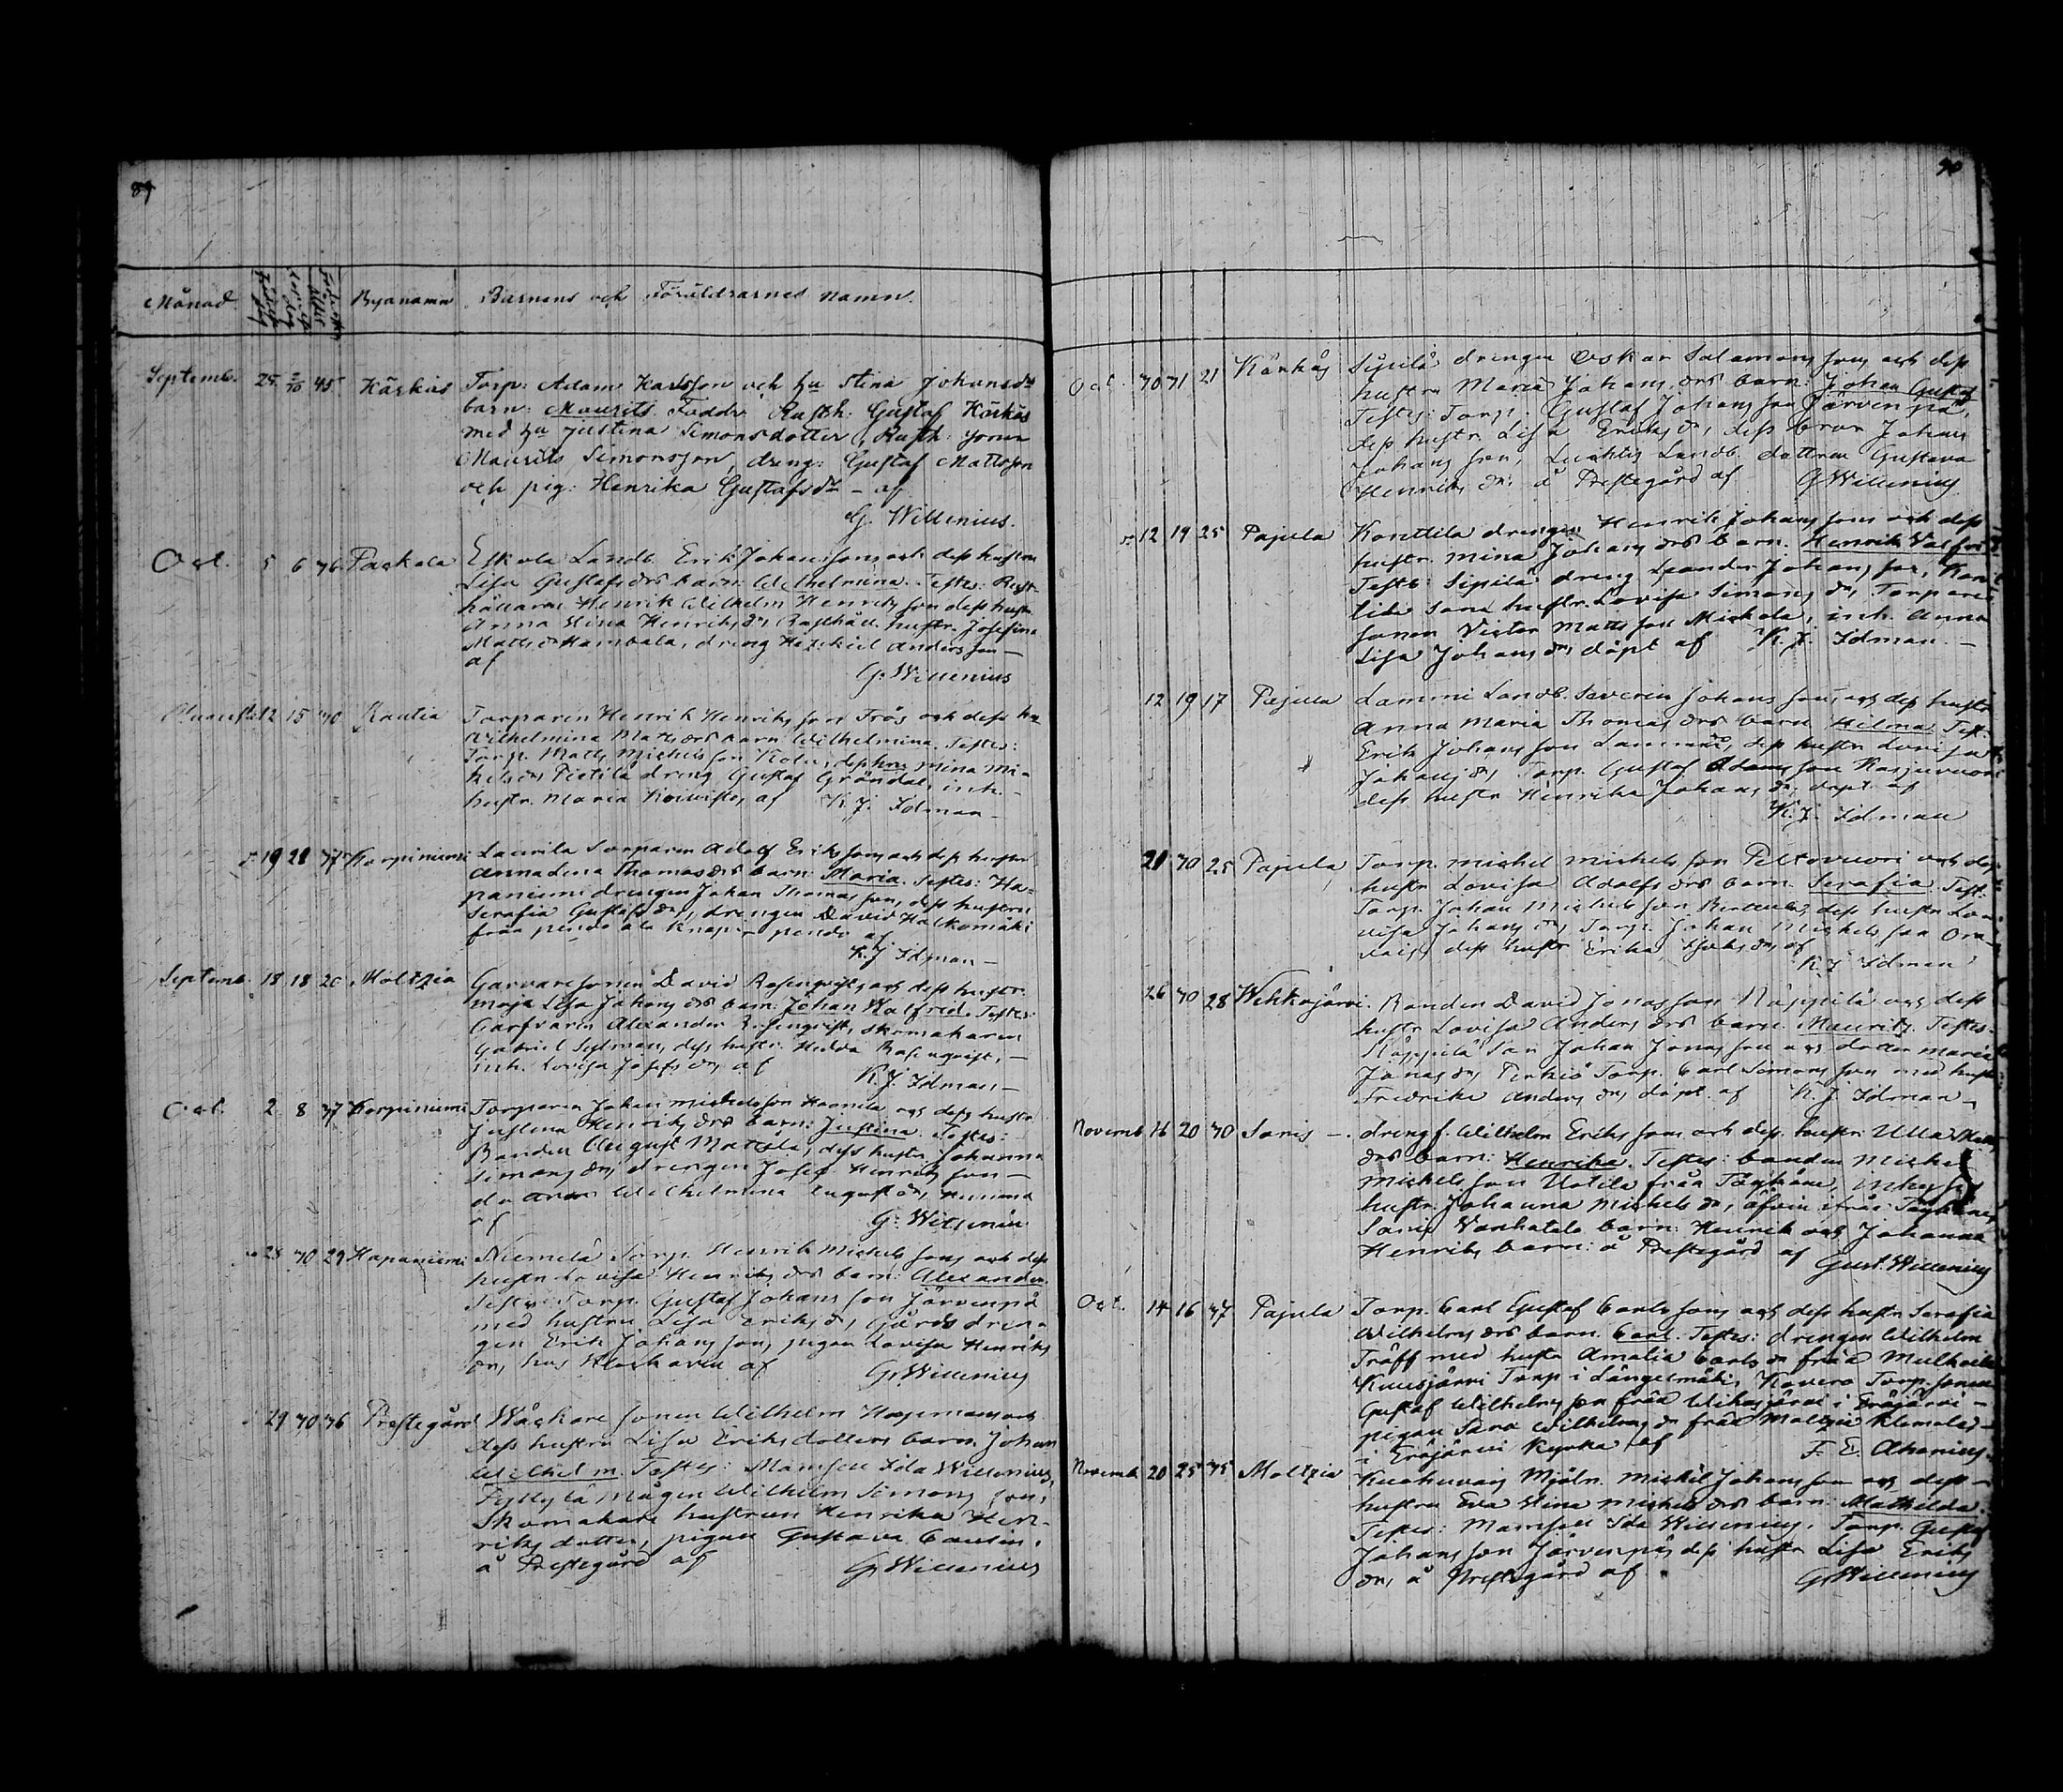 89
Månad Byanamn Barnens och Föräldrarnes Namn.
Septemb. 25 2/10 45 Käskäs Torp: Adam Karlsson och hu Stina Johansdr
barn: Maurits. Faddr. Rusth: Gustaf Käskäs
med hu Justina Simonsdotter, Rusth: sonen
Maurits Simonsson, dreng: Gustaf Mattsson
och pig: Henrika Gustafsdr – af
G. Willenius.
Oct. 5 6 36 Packala Eskola Landb. Erik Johansson och dess hustru
Lisa Gustafsdrs barn: Wilhelmina. Testes: Rust-
hållaren Henrik Wilhelm Henriksson dess hustr.
Anna Stina Henriksdr, Rusthåll. hustr. Josefina
Mattsdr Hambala, dreng Hezekiel Andersson –
af
G. Willenius
12 15 30 Rautia Torparen Henrik Henriksson Frös och dess hu
Wilhelmina Matsdrs barn Wilhelmina. Testes:
Torp. Matts Michelsson Kola, dess hu Mina Mi-
kelsdr, Pietilä dreng Gustaf Gröndal, inh.
hustr. Maria Koivisto, af K. J. Idman –
19 28 37 Korpiniemi Laurila Torparen Adolf Eriksson och dess hustru
Anna Lena Thomasdrs barn: Maria. Testes: Ha-
paniemi drengen Johan Thomasson, dess hustru
Serafia Gustafsdr, drengen David Halkomäki
från af
K. J. Idman –
Septemb. 18 18 20 Moltzia Garvaresonen David Rosenqvist och dess hustr.
Maja Lisa Johansdrs barn: Johan Walfred. Testes:
Garfvaren Alexander Rosenqvist, skomakaren
Gabriel Sylman, dess hustr. Hedda Rosenqvist, –
inh. Lovisa Josefsdr, af K. J. Idman –
Oct. 2 8 37 Korpiniemi Torparen Johan Michelsson Haonila och dess hustr.
Justina Henriksdrs barn: Justina. Testes:
Bonden August Mattila, dess hustr. Johanna
Simonsdr, drengen Josef Henriksson –
Wilhelmina Augustdr,
af G. Willenius
28 30 29 Hapaniemi Niemelä Torp. Henrik Michelsson och dess
hustr Lovisa Henriksdrs barn: Alexander.
Testes: Torp. Gustaf Johansson Järvenpä
med hustru Lisa Eriksdr, Gårds dren-
gen Erik Johansson, pigan Lovisa Henriks
dr, hos Klockaren af G. Willenius
29 30 36 Prestegård Wäskare sonen Wilhelm Hagemans och
dess hustru Lisa Eriksdotters barn. Johan
Wilhelm. Testes: Mamsell Ida Willenius,
Pyttylä Mågen Wilhelm Simonsson,
Skomakare hustrun Henrika Hen-
riksdotter, pigan Gustava
å Prestegård af G. Willenius
90
Oct. 30 31 21 Känkäs Sipilä drengen Oskar Salomonsson och dess
hustru Maria Johansdrs barn: Johan Gustaf
Testes: Torp. Gustaf Johansson Järvenpä,
dess hustr. Lisa Eriksdr, dess bror Johan
Johansson, Landb. dottren Gustava
Henriksdr, å Prestegård af G Willenius
12 19 25 Pajula Konttila drengen Henrik Johansson och dess
hustr. Mina Johansdrs barn. Henrik Valfri
Testes: Sipilä dreng Leander Johansson, Kont
tila hustr. Lovisa Simonsdr, Torpare
sonen Victor Mattsson Mickola, inh. Anna
Lisa Johansdr, döpt af K. J. Idman. –
12 19 17 Pajula Lammi Landb. Severin Johansson och dess hustr.
Anna Maria Thomasdrs barn Hilma. Test.
Erik Johansson Lammi, dess hustr Lovisa
Johansdr, Torp. Gustaf Adamsson
dess hustr Henrika Johansdr, döpt af
K. J. Idman
21 30 25 Pajula Torp. Michel Michelsson Peltovuori och dess
hustr Lovisa Adolfsdrs barn. Serafia Test.
Torp. Johan Michelsson dess hustr Lo-
visa Johansdr, Torp. Johan Michelsson
dess hustr Erika af
K. J. Idman
26 30 28 Wihkajärvi. Bonden David Jonasson Näppilä och dess
hustr Lovisa Andersdrs barn. Maurits. Testes:
Näppilä Son Johan Jonasson och dotter Maria
Jonasdr, Torp. Carl Simonsson med hustr
Fredrika Andersdr, döpt. af K. J. Idman –
Novemb. 16 20 30 Saris –. drengf. Wilhelm Eriksson och dess hustr: Ulla
drs barn: Henrika. Testes: bonden Michel
Michelsson Uotila från
hustr. Johanna Michelsdr, från
Saris Vanhatalo barn: Henrik och Johanna
Henriks barn: å Prestegård af Gust. Willenius
Oct. 14 16 37 Pajula Torp. Carl Gustaf Carlsson och dess hustr Serafia
Wilhelmsdrs barn. Carl. Testes: drengen Wilhelm
Träff med hustr Amalia Carlsdr från
Kuusjärvi Torp i Längelmäki, Kovero Torp. sonen
Gustaf Wilhelmsson från Wihasjärvi i Eräjärvi –
pigan Sara Wilhelmsdr från Moltzia Klemola –
i Eräjärvi Kyrka af F. E. Ahonius.
Novemb. 20 25 35 Moltzia Mjöln. Michel Johansson och dess –
hustru Eva Stina Michelsdrs barn. Mathilda
Testes: Mamsell Ida Willenius, Torp. Gustaf
Johansson Järvenpä, dess hustr Lisa Eriks
dr, å Prestegård af G. Willenius